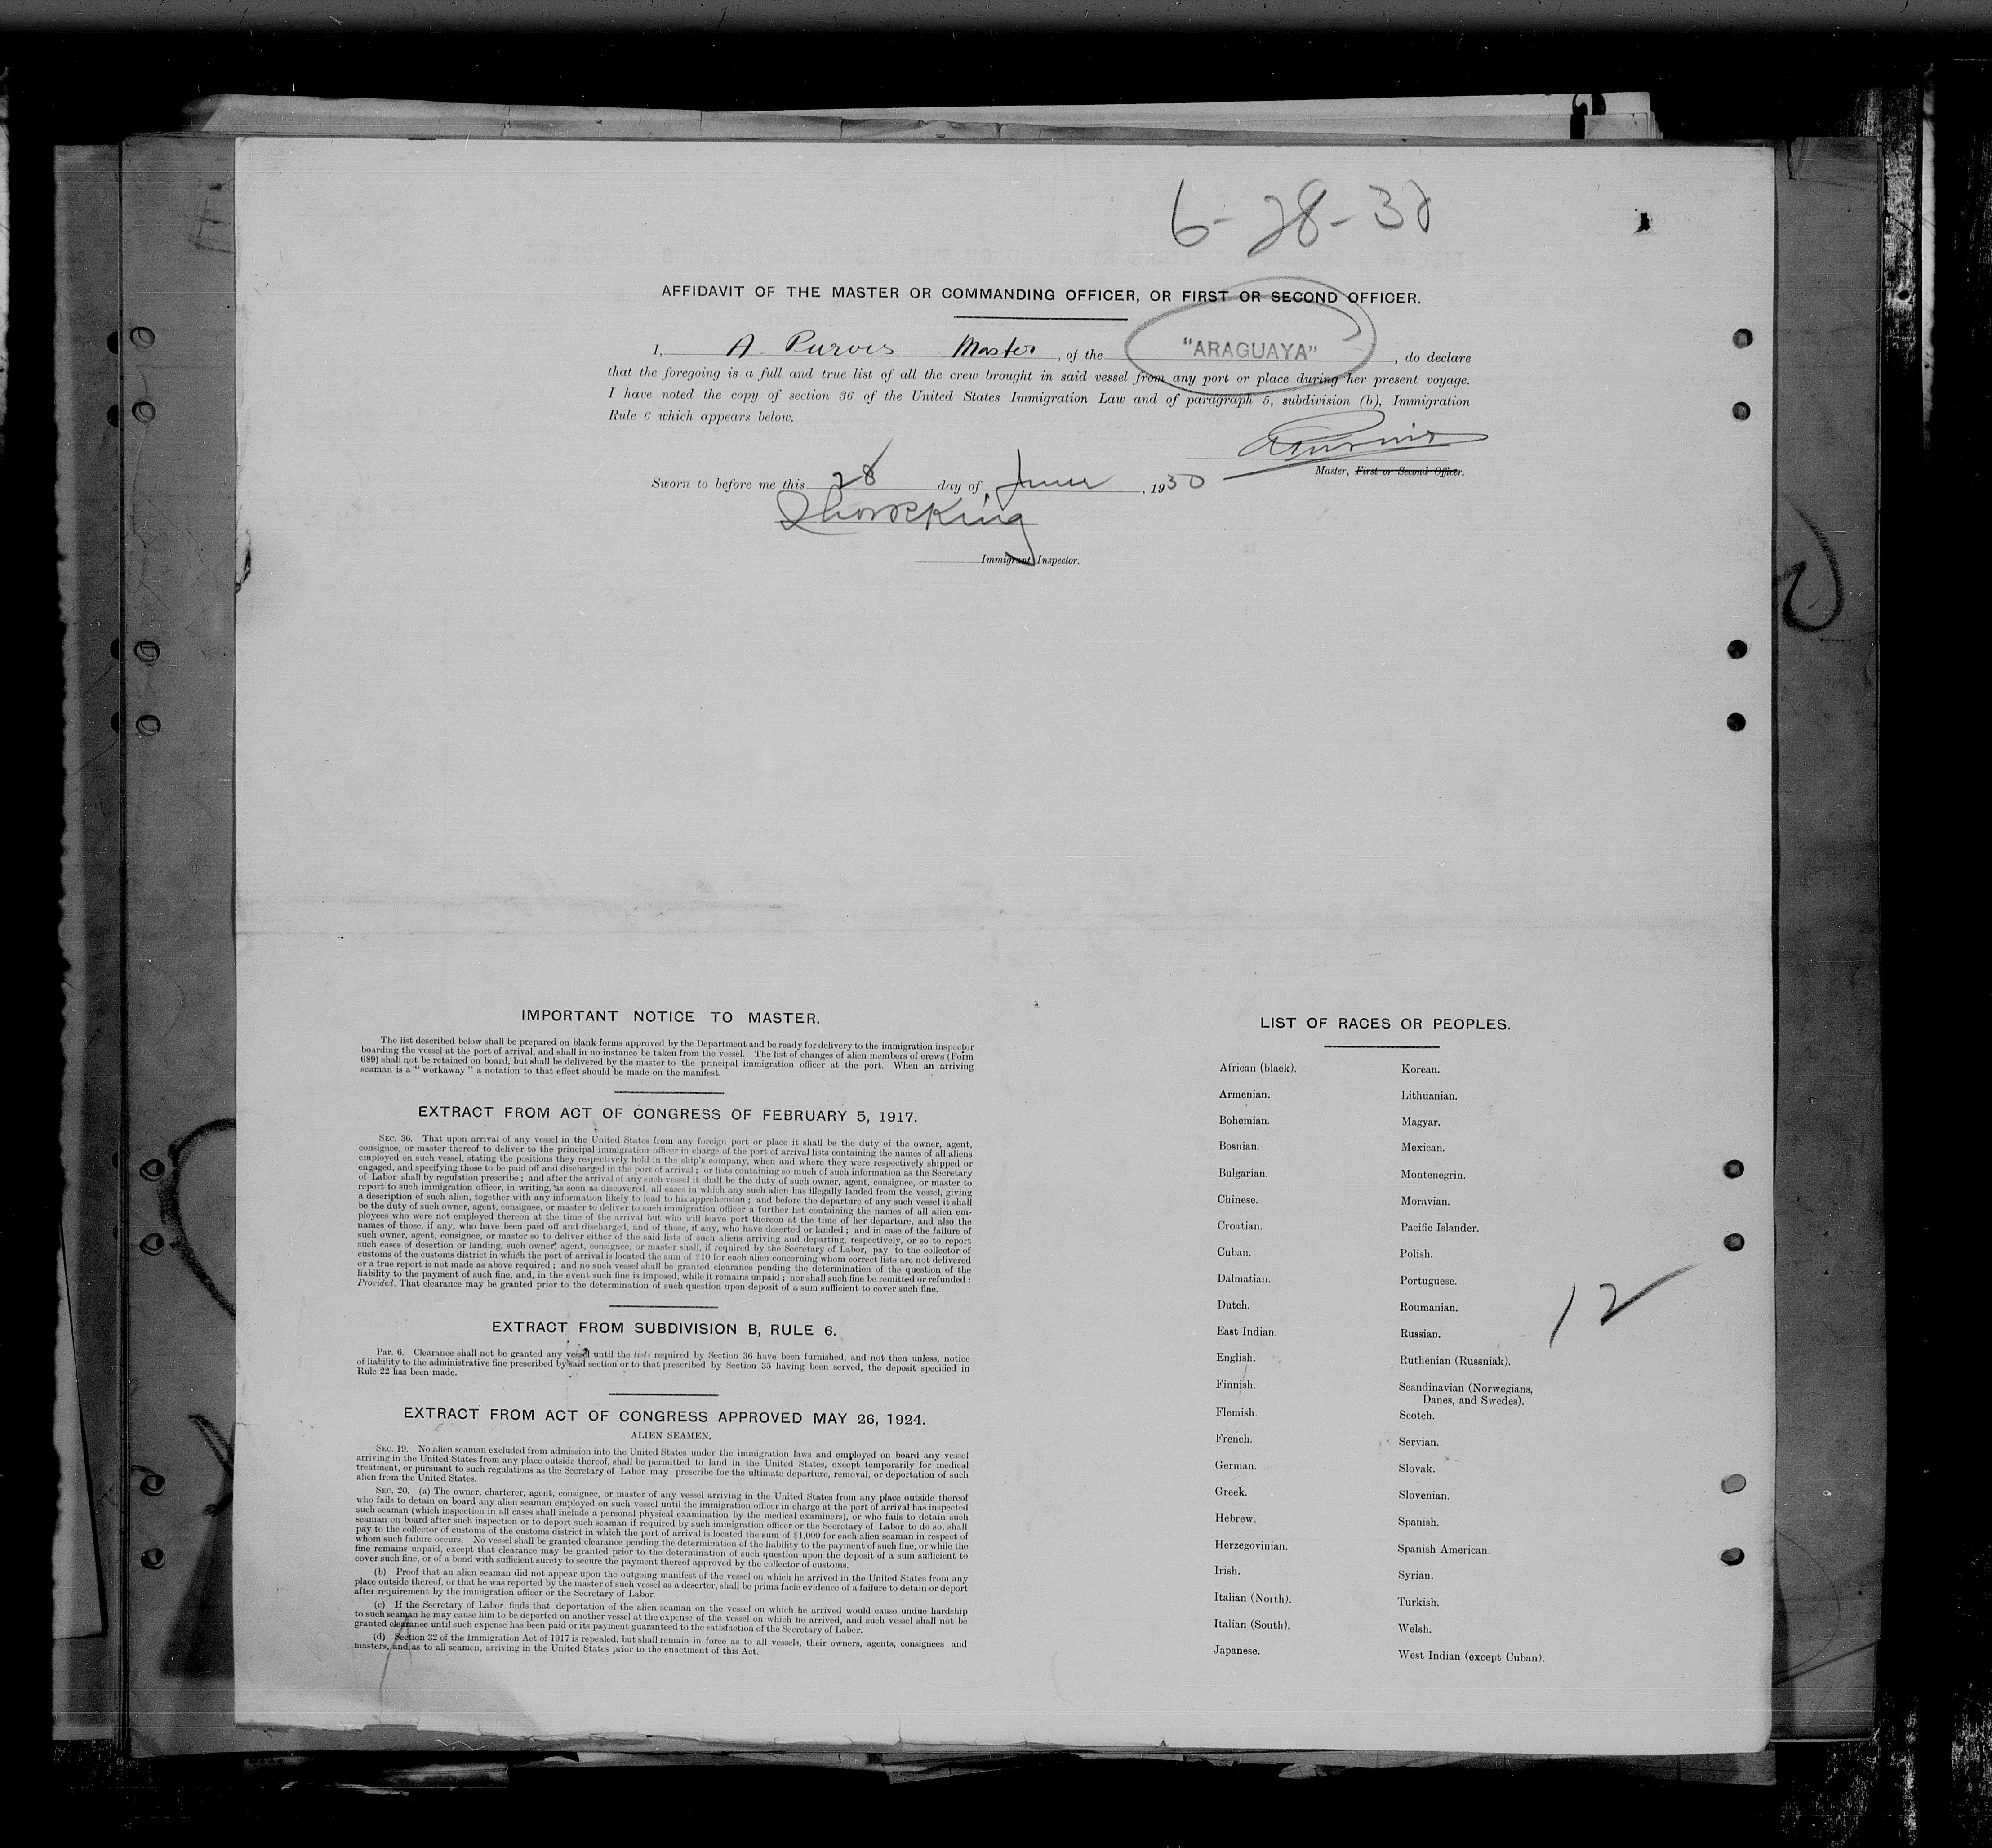 6-28-30
AFFIDAVIT OF THE MASTER OR COMMANDING OFFICER, OR FIRST OR SECOND OFFICER.
I, A Purves Master, of the "ARAGUAYA", do declare
that the foregoing is a full and true list of all the crew brought in said vessel from any port or place during her present voyage.
I have noted the copy of section 36 of the United States Immigration Law and of paragraph 5, subdivision (b), Immigration
Rule 6 which appears below.
Master, First or Second Officer.
Sworn to before me this 28 day of June, 1930
King
Immigrant Inspector.
IMPORTANT NOTICE TO MASTER.
The list described below shall be prepared on blank forms approved by the Department and be ready for delivery to the immigration inspector
boarding the vessel at the port of arrival, and shall in no instance be taken from the vessel. The list of changes of alien members of crews (Form
689) shall not be retained on board, but shall be delivered by the master to the principal immigration officer at the port. When an arriving
seaman is a "workaway" a notation to that effect should be made on the manifest.
EXTRACT FROM ACT OF CONGRESS OF FEBRUARY 5, 1917.
SEC. 36. That upon arrival of any vessel in the United States from any foreign port or place it shall be the duty of the owner, agent,
consignee, or master thereof to deliver to the principal immigration officer in charge of the port of arrival lists containing the names of all aliens
employed on such vessel, stating the positions they respectively hold in the ship's company, when and where they were respectively shipped or
engaged, and specifying those to be paid off and discharged in the port of arrival; or lists containing so much of such information as the Secretary
of Labor shall by regulation prescribe; and after the arrival of any such vessel it shall be the duty of such owner, agent, consignee, or master to
report to such immigration officer, in writing, as soon as discovered, all cases in which any such alien has illegally landed from the vessel, giving
a description of such alien, together with any information likely to lead to his apprehension; and before the departure of any such vessel it shall
be the duty of such owner, agent, consignee, or master to deliver to such immigration officer a further list containing the names of all alien em-
ployees who were not employed thereon at the time of the arrival but who will leave port thereon at the time of her departure, and also the
names of those, if any, who have been paid off and discharged, and of those, if any, who have deserted or landed; and in case of the failure of
such owner, agent, consignee, or master so to deliver either of the said lists of such aliens arriving and departing, respectively, or so to report
such cases of desertion or landing, such owner, agent, consignee, or master shall, if required by the Secretary of Labor, pay to the collector of
customs of the customs district in which the port of arrival is located the sum of $10 for each alien concerning whom correct lists are not delivered
or a true report is not made as above required; and no such vessel shall be granted clearance pending the determination of the question of the
liability to the payment of such fine, and, in the event such fine is imposed, while it remains unpaid; nor shall such fine be remitted or refunded:
Provided, That clearance may be granted prior to the determination of such question upon deposit of a sum sufficient to cover such fine.
EXTRACT FROM SUBDIVISION B, RULE 6.
Par. 6. Clearance shall not be granted any vessel until the lists required by Section 36 have been furnished, and not then unless, notice
of liability to the administrative fine prescribed by said section or to that prescribed by Section 35 having been served, the deposit specified in
Rule 22 has been made.
EXTRACT FROM ACT OF CONGRESS APPROVED MAY 26, 1924.
ALIEN SEAMEN.
SEC. 19. No alien seaman excluded from admission into the United States under the immigration laws and employed on board any vessel
arriving in the United States from any place outside thereof, shall be permitted to land in the United States, except temporarily for medical
treatment, or pursuant to such regulations as the Secretary of Labor may prescribe for the ultimate departure, removal, or deportation of such
alien from the United States.
SEC. 20. (a) The owner, charterer, agent, consignee, or master of any vessel arriving in the United States from any place outside thereof
who fails to detain on board any alien seaman employed on such vessel until the immigration officer in charge at the port of arrival has inspected
such seaman (which inspection in all cases shall include a personal physical examination by the medical examiners), or who fails to detain such
seaman on board after such inspection or to deport such seaman if required by such immigration officer or the Secretary of Labor to do so, shall
pay to the collector of customs of the customs district in which the port of arrival is located the sum of $1,000 for each alien seaman in respect of
whom such failure occurs. No vessel shall be granted clearance pending the determination of the liability to the payment of such fine, or while the
fine remains unpaid, except that clearance may be granted prior to the determination of such question upon the deposit of a sum sufficient to
cover such fine, or of a bond with sufficient surety to secure the payment thereof approved by the collector of customs.
(b) Proof that an alien seaman did not appear upon the outgoing manifest of the vessel on which he arrived in the United States from any
place outside thereof, or that he was reported by the master of such vessel as a deserter, shall be prima facie evidence of a failure to detain or deport
after requirement by the immigration officer or the Secretary of Labor.
(c) If the Secretary of Labor finds that deportation of the alien seaman on the vessel on which he arrived would cause undue hardship
to such seaman he may cause him to be deported on another vessel at the expense of the vessel on which he arrived, and such vessel shall not be
granted clearance until such expense has been paid or its payment guaranteed to the satisfaction of the Secretary of Labor.
(d) Section 32 of the Immigration Act of 1917 is repealed, but shall remain in force as to all vessels, their owners, agents, consignees and
masters, and as to all seamen, arriving in the United States prior to the enactment of this Act.
LIST OF RACES OR PEOPLES.
African (black).
Armenian.
Bohemian.
Bosnian.
Bulgarian.
Chinese.
Croatian.
Cuban.
Dalmatian.
Dutch.
East Indian.
English.
Finnish.
Flemish.
French.
German.
Greek.
Hebrew.
Herzegovinian.
Irish.
Italian (North).
Italian (South).
Japanese.
Korean.
Lithuanian.
Magyar.
Mexican.
Montenegrin.
Moravian.
Pacific Islander.
Polish.
Portuguese.
Roumanian.
Russian.
Ruthenian (Russniak).
Scandinavian (Norwegians,
Danes, and Swedes).
Scotch.
Servian.
Slovak.
Slovenian.
Spanish.
Spanish American.
Syrian.
Turkish.
Welsh.
West Indian (except Cuban).
12